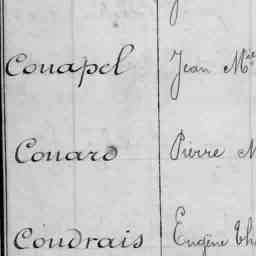 Couapel Jean Mie
Couard Pierre M
Coudrais Eugène Th